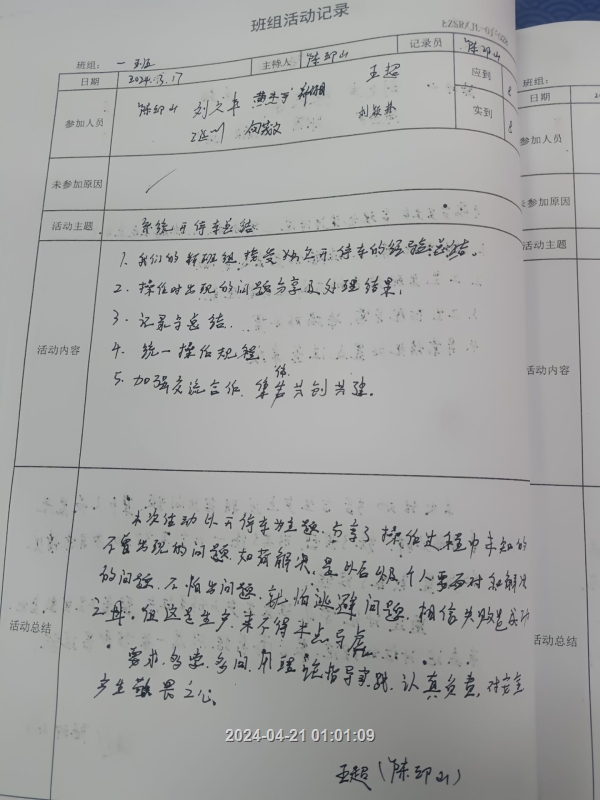 班组活动记录
EZSR/JL-
班组: 一 王班 主持人 陈印山 记录员 陈印山
日期 2024.3.17 王超 应到
参加人员 陈印山 刘久丰 实到
未参加原因
活动主题 系统开停车总结
活动内容
1. 我们的 班组 接受 开停车的经验总结。
2. 操作时出现的问题分享及处理结果,
3. 记录与总结.
4. 统一操作规程.
5. 加强交流合作, 集体 共创共建。
活动总结
本次活动以开停车为主题, 分享了操作过程中未知的
不曾出现的问题, 如何解决, 是以后 个人要面对和解决
的问题, 不怕出问题, 就怕逃避问题, 相信失败是成功
之母, 但这是生产, 来不得半点马虎.
要求, 多带, 多问, 用理论指导实践, 认真负责, 对安全
产生敬畏之心.
王超(陈印山)
2024-04-21 01:01:09
班组:
日期 2
参加人员
未参加原因
活动主题
活动内容
活动总结